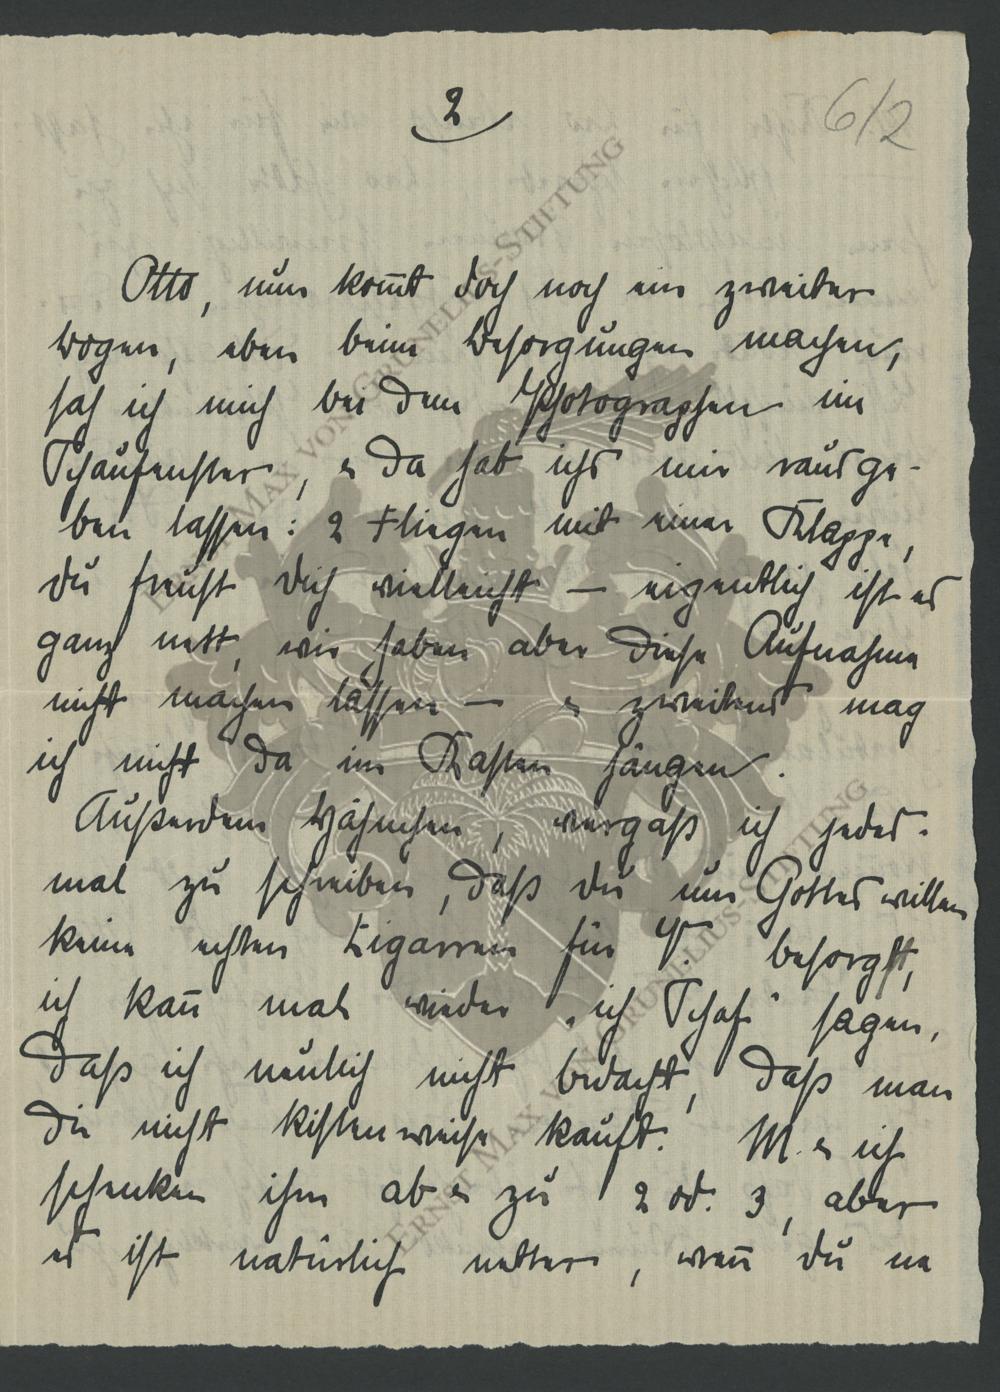 2
6/2
Otto, nun kom̅t doch noch ein zweiter
Bogen, eben beim Besorgungen machen,
sah ich mich bei dem Photographen im
Schaufenster, & da hab ichs mir rausge-
ben lassen: 2 Fliegen mit einer Klappe,
du freust dich vielleicht — eigentlich ist es
ganz nett, wir haben aber diese Aufnahme
nicht machen lassen — & zweitens mag
ich nicht da im Kasten hängen.
Außerdem Hähnchen, vergaß ich jedes-
mal zu schreiben, daß du um Gottes willen
keine echten Zigarren für V. besorgst,
ich kan̅ mal wieder „ich Schaf" sagen,
daß ich neulich nicht bedacht, daß man
die nicht kistenweise kauft. M. & ich
schenken ihm ab & zu 2 od. 3, aber
es ist natürlich netter, wen̅ du ne
ERNST MAX VON GRUNELIUS-STIFTUNG
ERNST MAX VON GRUNELIUS-STIFTUNG